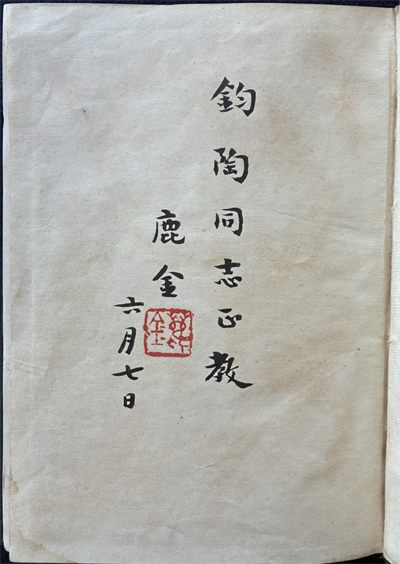 鈞陶同志正教
鹿金
六月七日